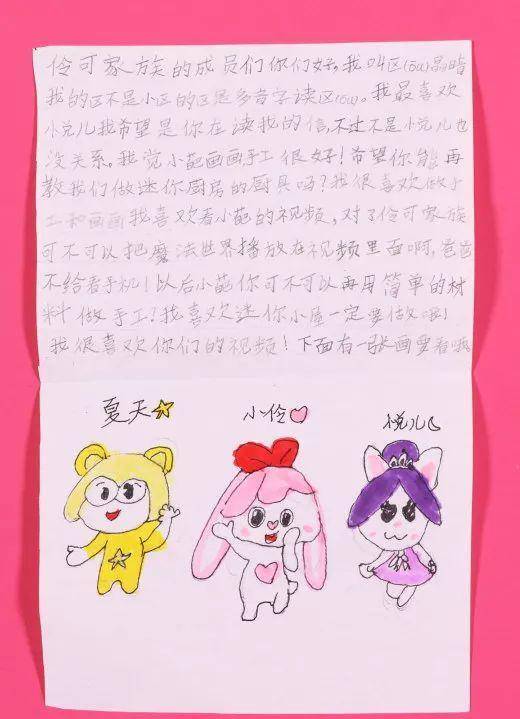 伶可家族的成员们你们好。我叫区(ōu)晶晴
我的区不是小区的区是多音字读区(ōu)。我最喜欢
小悦儿我希望是你在读我的信,不过不是小悦儿也
没关系。我觉小葩画画手工很好!希望你能再
教我们做迷你厨房的厨具吗?我很喜欢做手
工和画画我喜欢看小葩的视频,对了伶可家族
可不可以把魔法世界播放在视频里面啊,爸爸
不给看手机!以后小葩你可不可以再用简单的材
料做手工?我喜欢迷你小屋一定要做哦!
我很喜欢你们的视频!下面有一张画要看哦
夏天 小伶 悦儿